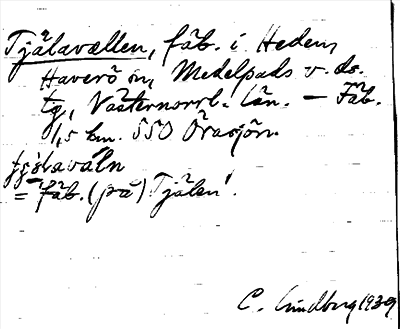 Tjälavallen, fäb. i Heden,
Haverö sn, Medelpads v. ds.
tg, Västernorrl. län. – Fäb.
1,5 km. SSO Örasjön.
= Fäb. (på) 'Tjälen'.
C. Lindberg 1939